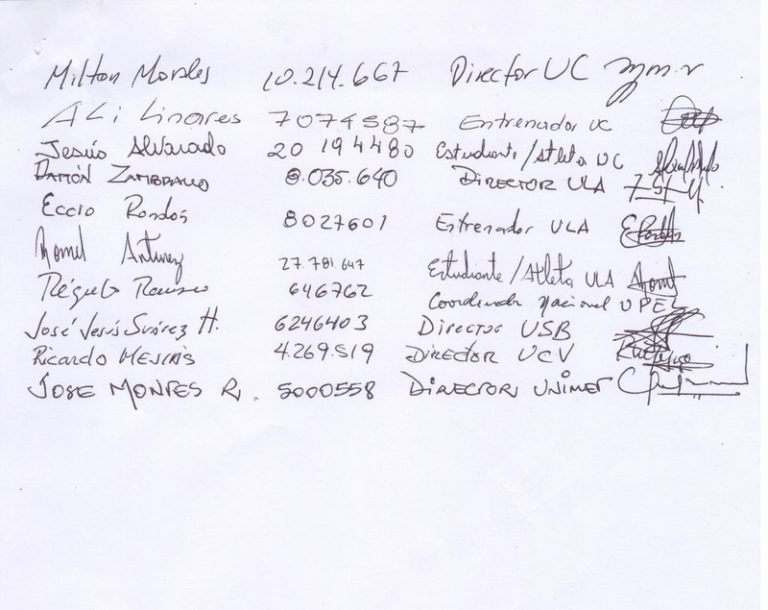 Milton Morales 10.214.667 Director UC
ALi Linares 7074587 Entrenador UC
Jesús Alvarado 20194480 Estudiante/Atleta UC
RAMÓN ZAMBRANO 8.035.640 DIRECTOR ULA
Eccio Rondós 8027601 Entrenador ULA
Antunez 27.781.647 Estudiante/Atleta ULA
646762 Coordenador Nacional UPEL
José Jesús Suárez H. 6246403 Director USB
Ricardo MEJIAS 4.269.519 DIRECTOR UCV
JOSE MONTES R. 5000558 DIRECTOR UNIMET